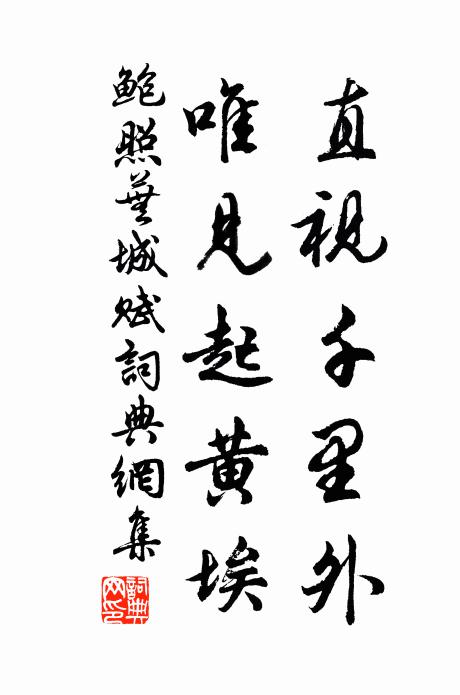 直視千里外
唯見起黄埃
鮑照蕪城賦詞典網集
詞典網印